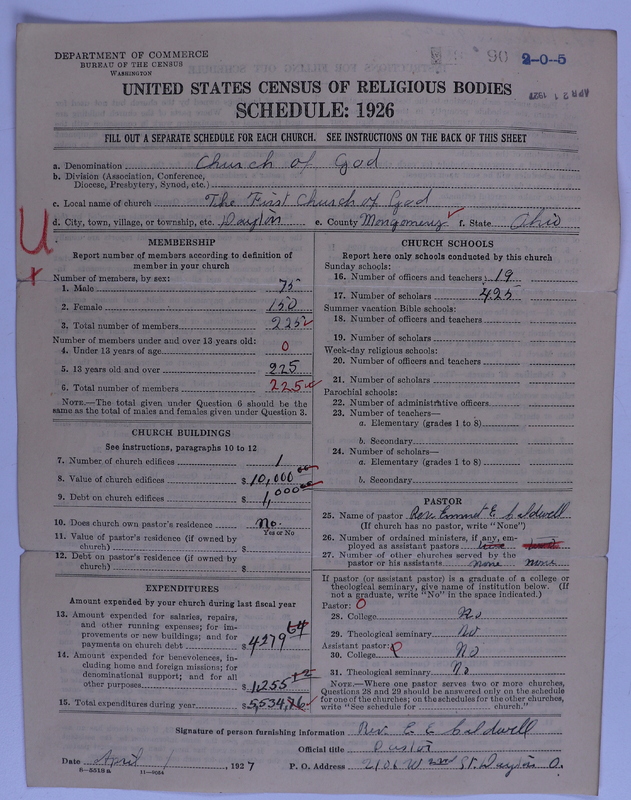 DEPARTMENT OF COMMERCE
BUREAU OF THE CENSUS
WASHINGTON
90
2-0-5
APR 21 1927
UNITED STATES CENSUS OF RELIGIOUS BODIES
SCHEDULE: 1926
FILL OUT A SEPARATE SCHEDULE FOR EACH CHURCH. SEE INSTRUCTIONS ON THE BACK OF THIS SHEET
a. Denomination Church of God
b. Division (Association, Conference, Diocese, Presbytery, Synod, etc.)
c. Local name of church The First Church of God
d. City, town, village, or township, etc. Dayton e. County Montgomery f. State Ohio
MEMBERSHIP
Report number of members according to definition of member in your church
Number of members, by sex:
1. Male 75
2. Female 150
3. Total number of members 225
Number of members under and over 13 years old:
4. Under 13 years of age 0
5. 13 years old and over 225
6. Total number of members 225
NOTE.—The total given under Question 6 should be the same as the total of males and females given under Question 3.
CHURCH BUILDINGS
See instructions, paragraphs 10 to 12
7. Number of church edifices 1
8. Value of church edifices $10,000 00
9. Debt on church edifices $1,000 00
10. Does church own pastor's residence No.
Yes or No
11. Value of pastor's residence (if owned by church) $
12. Debt on pastor's residence (if owned by church) $
EXPENDITURES
Amount expended by your church during last fiscal year
13. Amount expended for salaries, repairs, and other running expenses; for improvements or new buildings; and for payments on church debt $4279 64
14. Amount expended for benevolences, including home and foreign missions; for denominational support; and for all other purposes $1,255 12
15. Total expenditures during year $5,534.76
CHURCH SCHOOLS
Report here only schools conducted by this church
Sunday schools:
16. Number of officers and teachers 19
17. Number of scholars 425
Summer vacation Bible schools:
18. Number of officers and teachers
19. Number of scholars
Week-day religious schools:
20. Number of officers and teachers
21. Number of scholars
Parochial schools:
22. Number of administrative officers
23. Number of teachers—
a. Elementary (grades 1 to 8)
b. Secondary
24. Number of scholars—
a. Elementary (grades 1 to 8)
b. Secondary
PASTOR
25. Name of pastor Rev. Emmet E Caldwell
(If church has no pastor, write "None")
26. Number of ordained ministers, if any, employed as assistant pastors
27. Number of other churches served by the pastor or his assistants none none
If pastor (or assistant pastor) is a graduate of a college or theological seminary, give name of institution below. (If not a graduate, write "No" in the space indicated.)
Pastor: 0
28. College No
29. Theological seminary No
Assistant pastor:
30. College No
31. Theological seminary No
NOTE.—Where one pastor serves two or more churches, Questions 28 and 29 should be answered only on the schedule for one of the churches; on the schedules for the other churches, write "See schedule for church."
Signature of person furnishing information Rev. E E Caldwell
Official title Pastor
Date April 1, 1927 P. O. Address 2106 W St. Dayton O.
8-5518a 11-9054